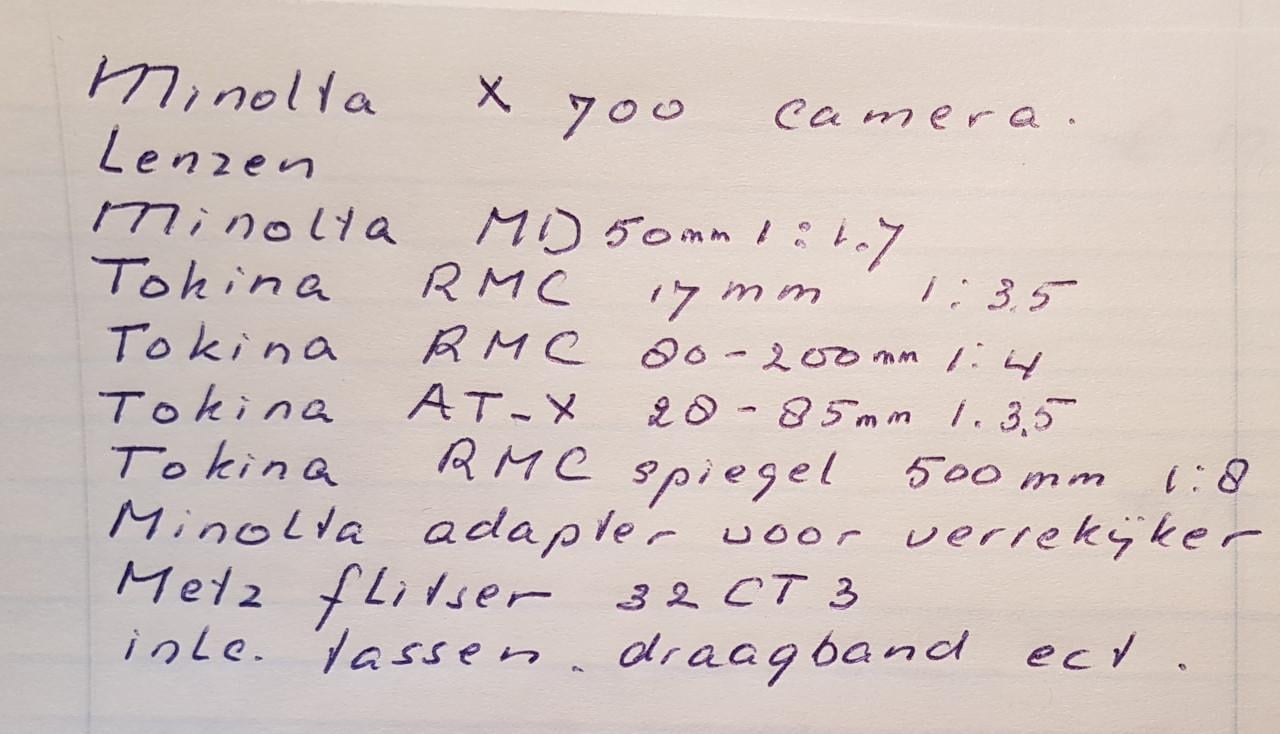 Minolta X 700 camera.
Lenzen
Minolta MD 50mm 1:1.7
Tokina RMC 17mm 1:3.5
Tokina RMC 80-200mm 1:4
Tokina AT-X 28-85mm 1.3.5
Tokina RMC spiegel 500mm 1:8
Minolta adapter voor verrekijker
Metz flitser 32 CT 3
inlc. tassen. draagband ect.